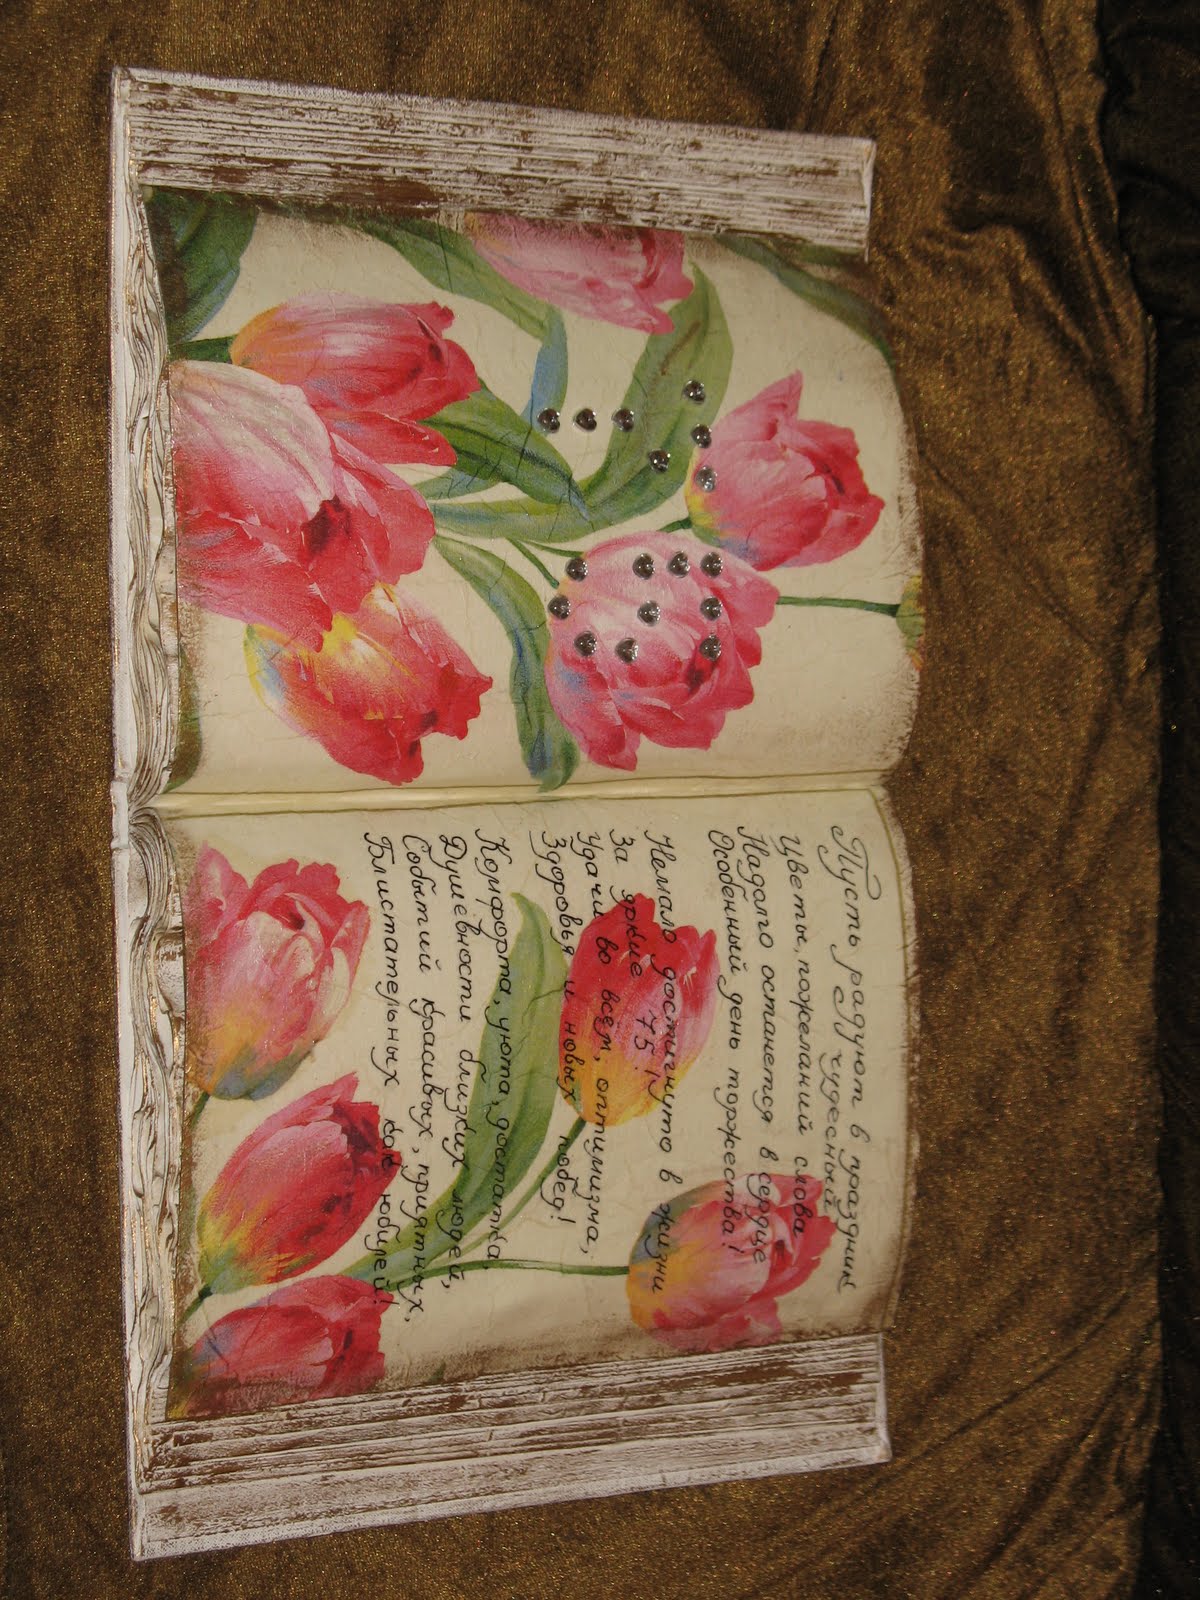 75
Пусть радуют в праздник
чудесный
Цветы, пожеланий слова
Надолго останется в сердце
Особенный день торжества!
Немало достигнуто в жизни
За яркие 75!
Удачи во всём, оптимизма,
Здоровья и новых побед!
Комфорта, уюта, достатка,
Душевности близких людей,
Событий красивых, приятных,
Блистательных как юбилей!